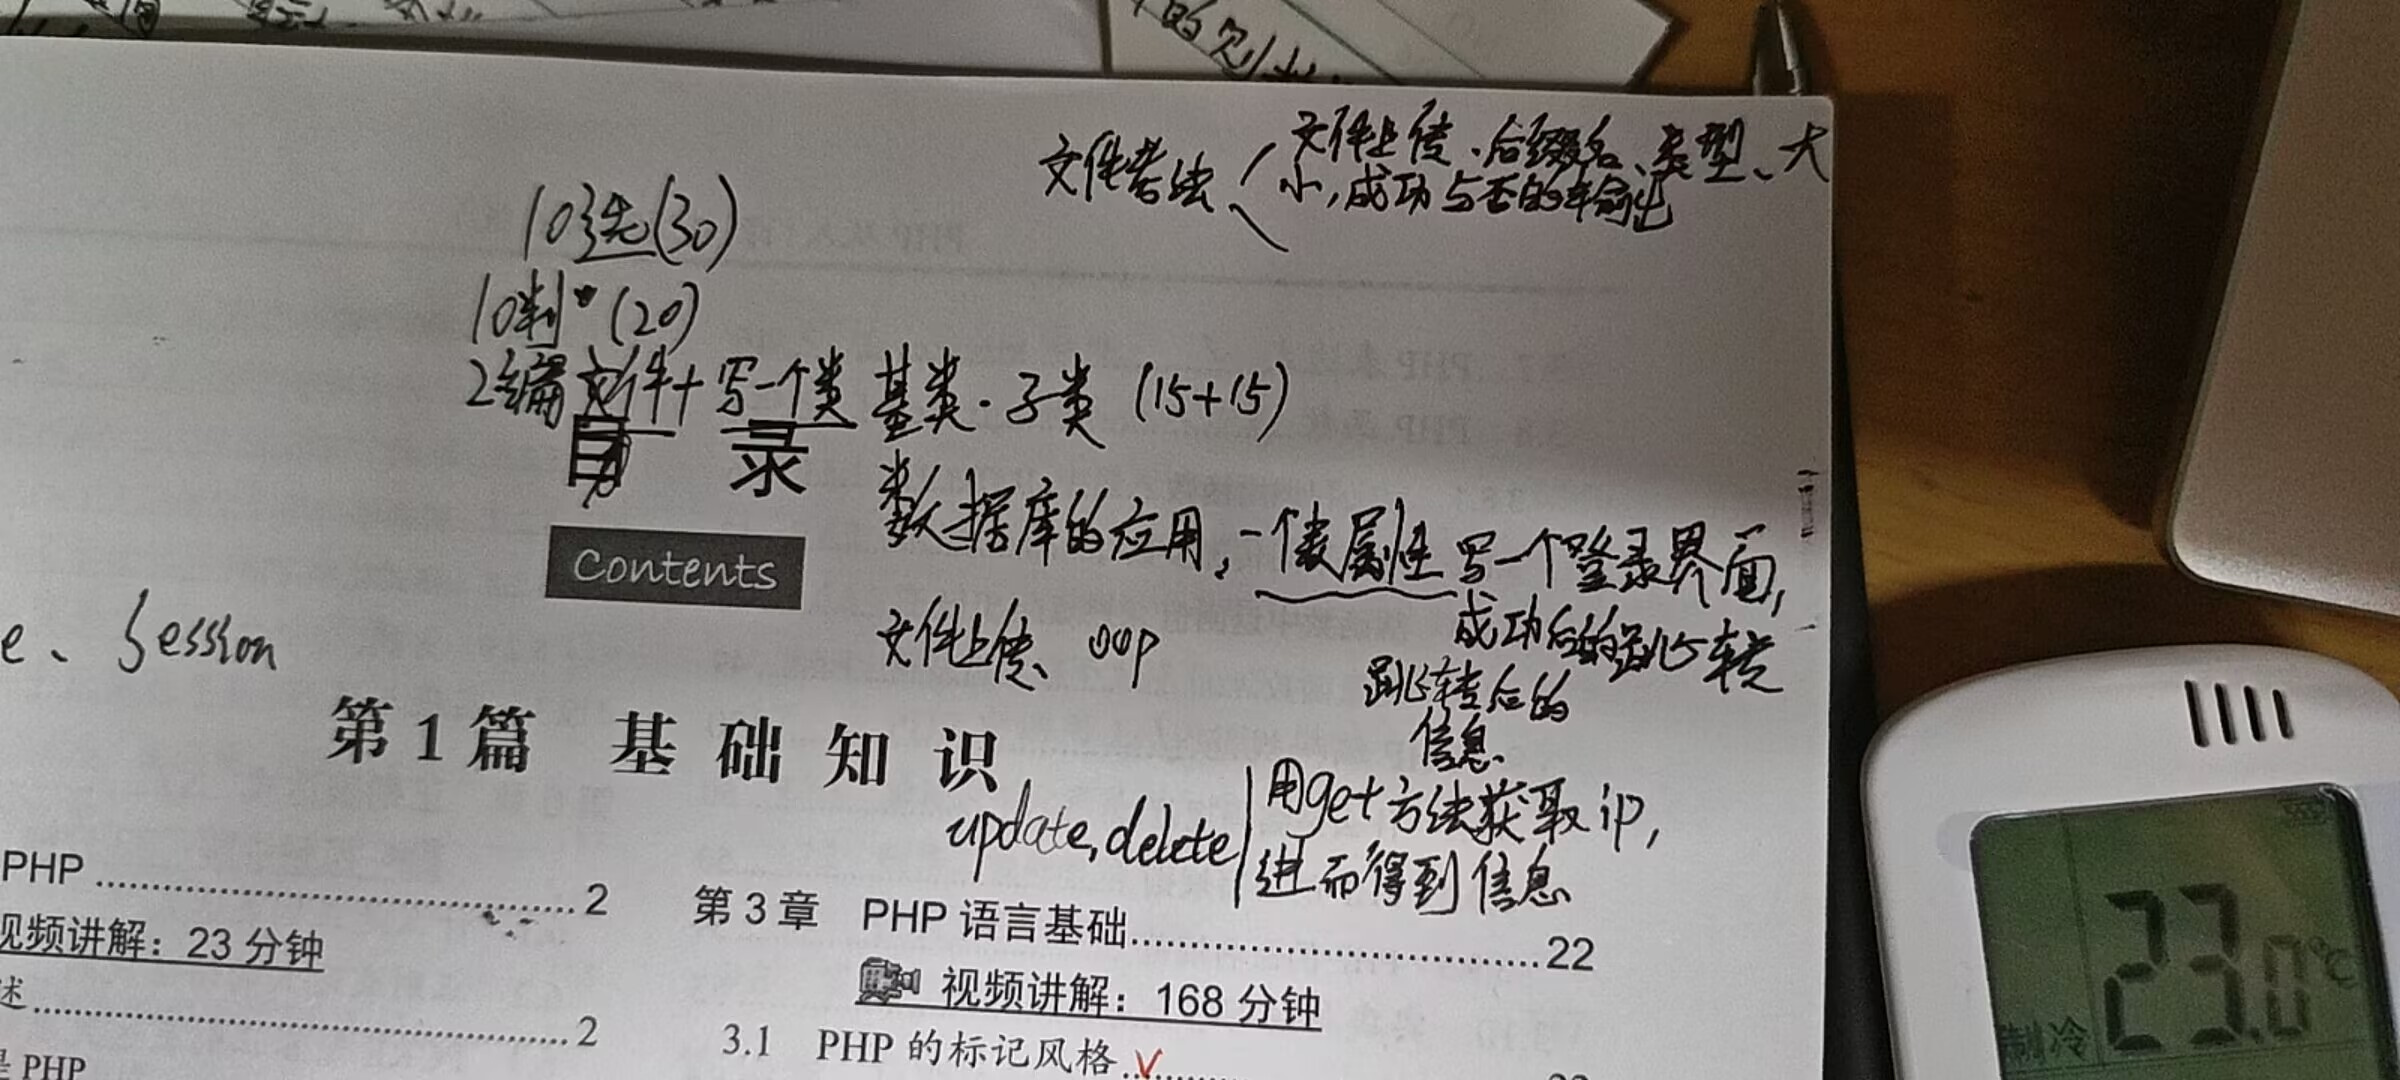 文件考法
文件上传、后缀名、类型、大
小,成功与否的输出
10选(30)
10判(20)
2编 文件+写一个类 基类·子类 (15+15)
目 录
数据库的应用,一个表属性 写一个登录界面,
成功后的跳转
跳转后的
信息、
Contents
文件上传、oop
e、Session
第1篇 基础知识
update,delete
用get方法获取ip,
进而得到信息
PHP 2
视频讲解:23 分钟
述 2
是 PHP
第 3 章 PHP 语言基础 22
视频讲解:168 分钟
3.1 PHP 的标记风格
制冷
23.0°C